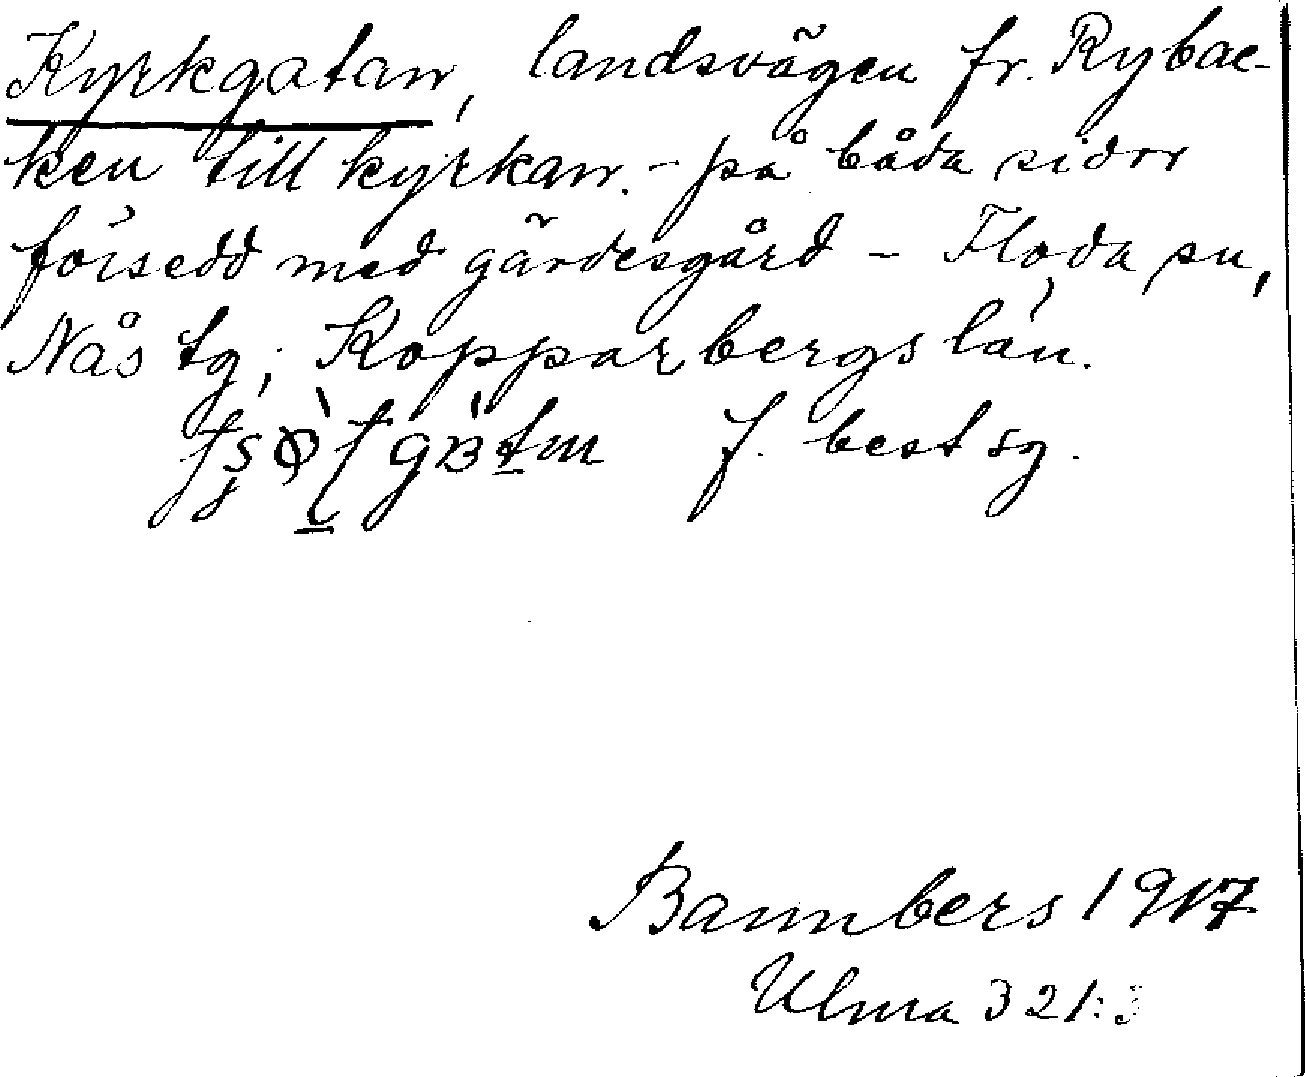 Kyrkgatan, landsvägen fr. Rybac-
ken till kyrkan. - på båda sidor
försedd med gärdesgård - Floda sn,
Nås tg, Kopparbergs län.
f. best sg.
Bannbers 1917
Ulma 321:3